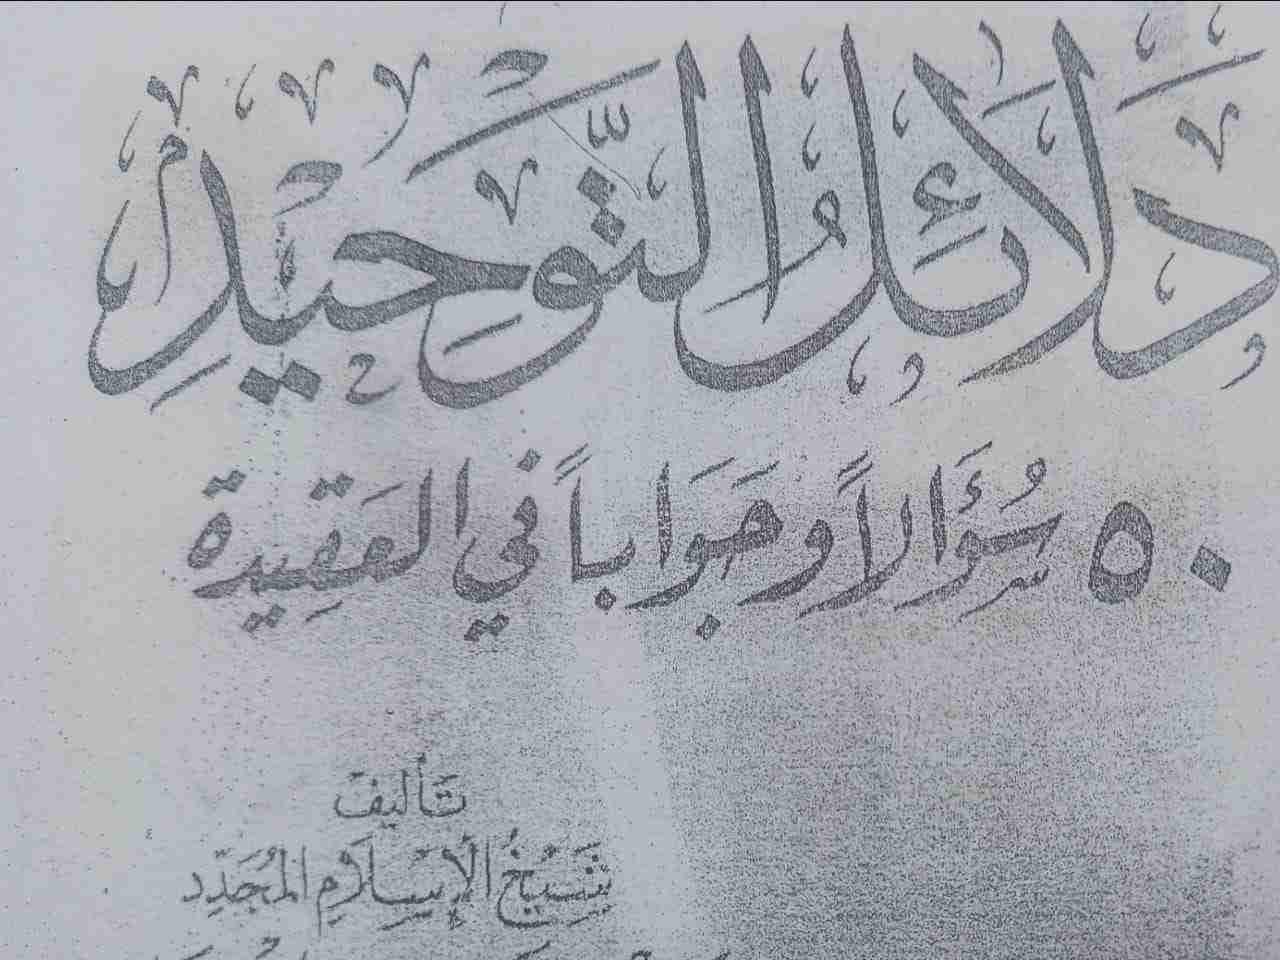 دَلَائِلُ التَّوْحِيْدِ
٥٠ سُؤَالاً وَجَوَاباً فِي العَقِيدَة
تَأليف
شَيْخُ الإِسْلَامِ المُجَدِّد